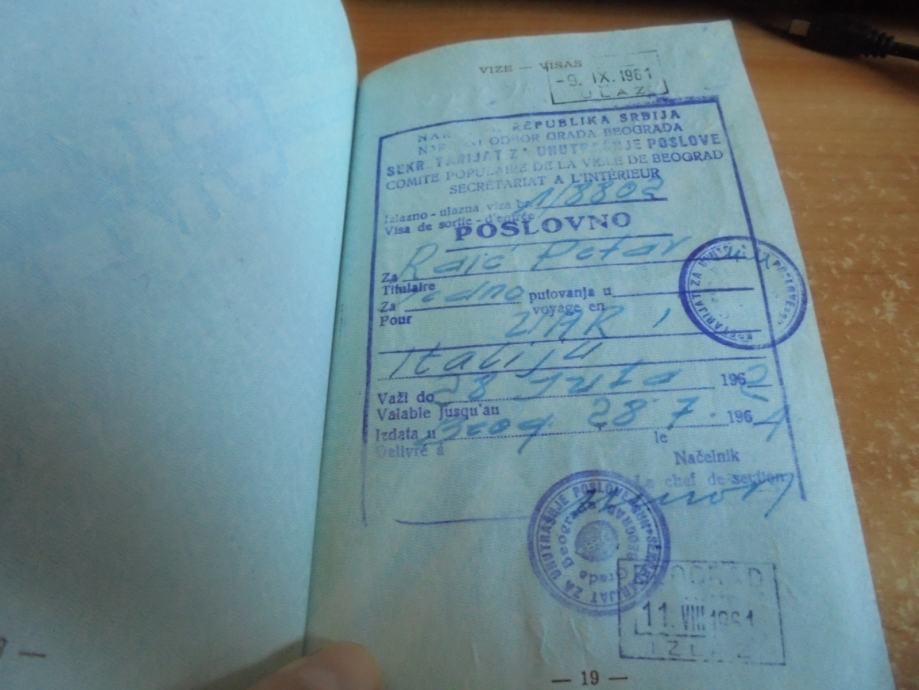 VIZE — VISAS
-9. IX. 1961
ULAZ
REPUBLIKA SRBIJA
ODBOR GRADA BEOGRADA
SEKRETARIJAT ZA UNUTRAŠNJE POSLOVE
COMITE POPULAIRE DE LA VILLE DE BEOGRAD
SECRETARIAT A L'INTERIEUR
Izlazno - ulazna viza br 1/8802
Visa de sortie - d'entrée
POSLOVNO
Za Raić Petar
Titulaire
Za jedno putovanja u
Pour voyage en
UAR i
Italiju
Važi do 28 Jula 1962
Valable jusqu'au
Izdata u Beog 28 7. 1961
Delivré à le
Načelnik
Le chef de section
SEKRETARIJAT ZA UNUTRAŠNJE POSLOVE
Beograd
BEOGRAD
11. VIII 1961
IZLAZ
— 19 —